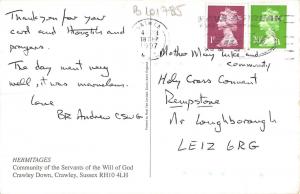 B 101785
Thank you for your
card and
prayers.
The day went very
well, it was marvelous.
Love
BR Andrew CSWG
HERMITAGES
Community of the Servants of the Will of God
Crawley Down, Crawley, Sussex RH10 4LH
1ST
Mother Mary Luke and
community
Holy Cross Convent
Rempstone
Nr Loughborough
LE12 6RG